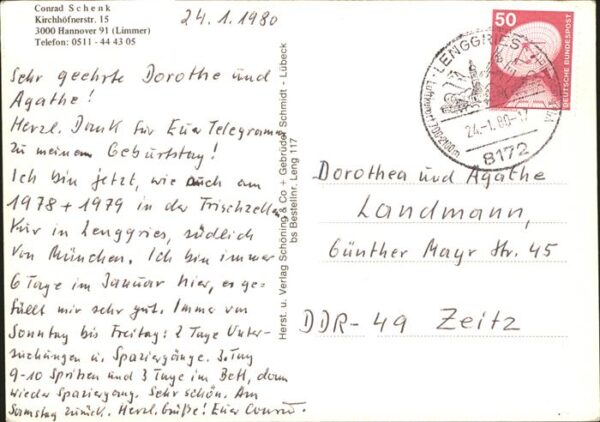 Conrad Schenk
Kirchhöfnerstr. 15
3000 Hannover 91 (Limmer)
Telefon: 0511 - 44 43 05
24.1.1980
Sehr geehrte Dorothe und
Agathe!
Herzl. Dank für Euer Telegramm
zu meinem Geburtstag!
Ich bin jetzt, wie auch am
1978 + 1979 in der Frischzellen
Kur in Lenggries, südlich
von München. Ich bin immer
6 Tage im Januar hier, es ge-
fällt mir sehr gut. Immer von
Sonntag bis Freitag: 2 Tage Unter-
suchungen u. Spaziergänge. 3. Tag
9-10 Spritzen und 3 Tage im Bett, dann
wieder Spaziergang. Sehr schön. Am
Samstag zurück. Herzl. Grüße! Euer Conrad.
Herst. u. Verlag Schöning & Co + Gebrüder Schmidt - Lübeck
bs Bestellnr. Leng 117
50
DEUTSCHE BUNDESPOST
LENGGRIES
Luftkurort
700-2100m
24.-1.80-17
8172
Dorothea und Agathe
Landmann,
Günther Mayr Str. 45
DDR-49 Zeitz